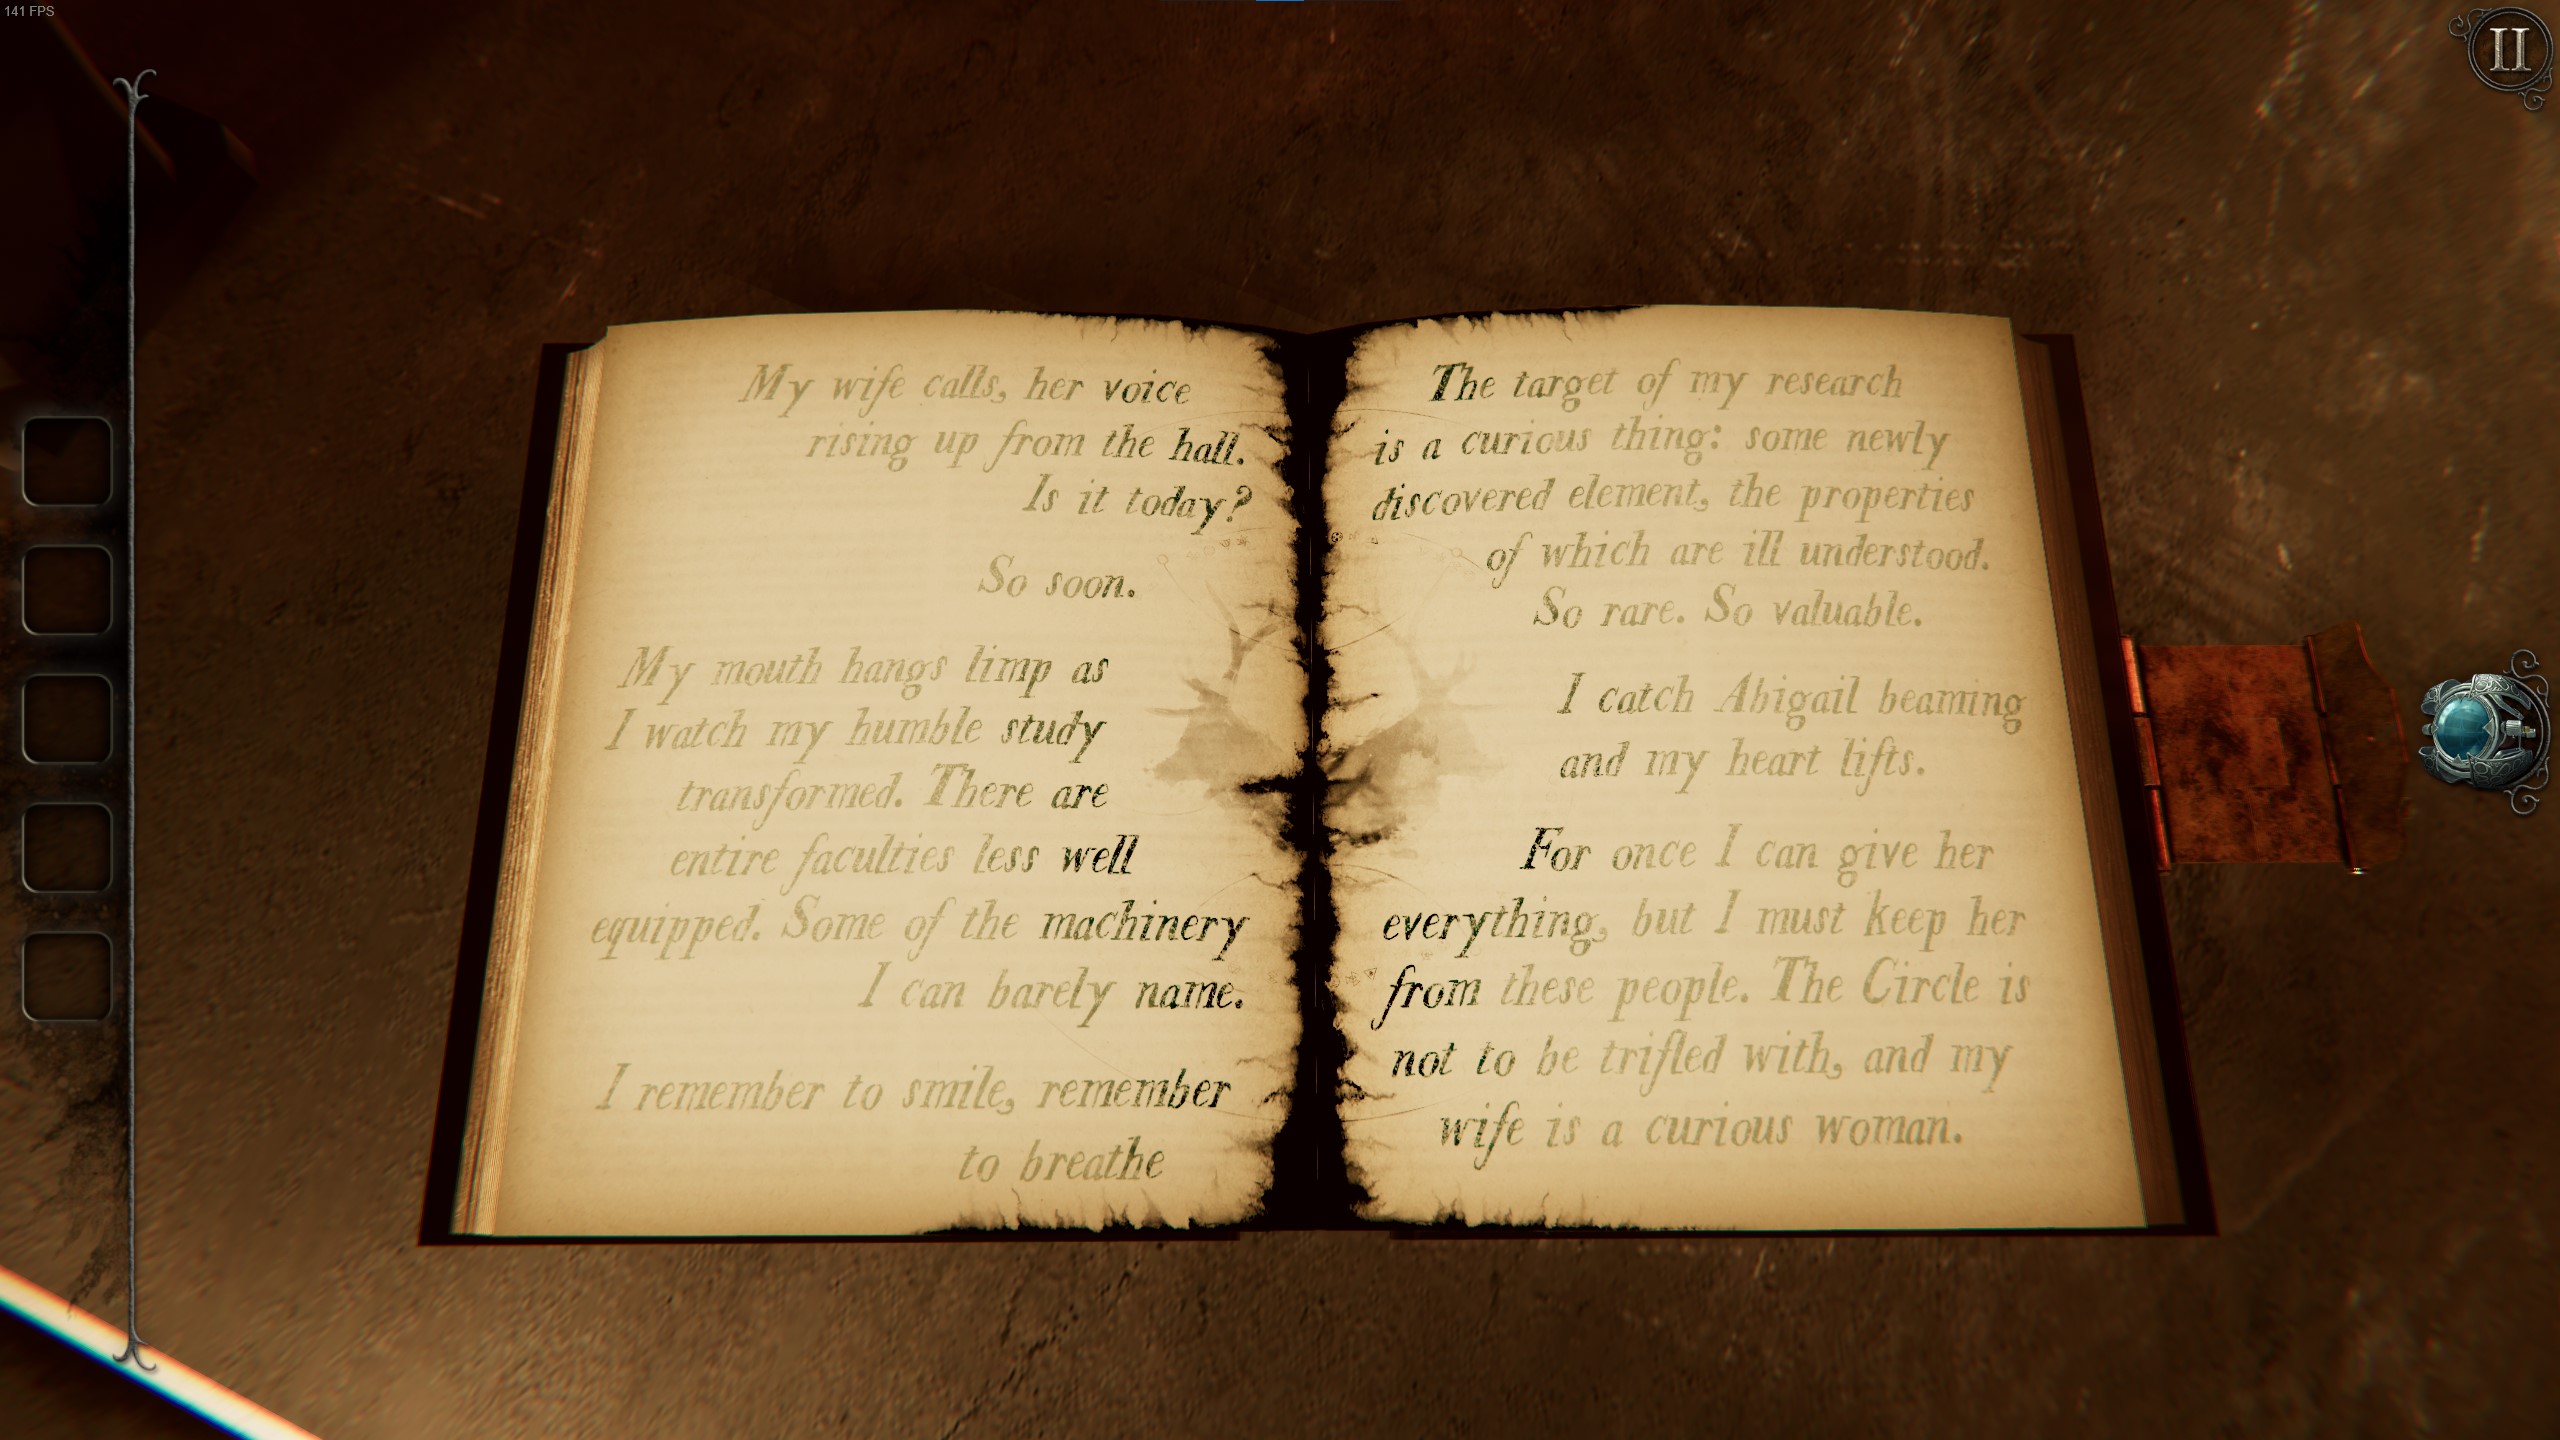 141 FPS
II
My wife calls, her voice
rising up from the hall.
Is it today?
So soon.
My mouth hangs limp as
I watch my humble study
transformed. There are
entire faculties less well
equipped. Some of the machinery
I can barely name.
I remember to smile, remember
to breathe
The target of my research
is a curious thing: some newly
discovered element, the properties
of which are ill understood.
So rare. So valuable.
I catch Abigail beaming
and my heart lifts.
For once I can give her
everything, but I must keep her
from these people. The Circle is
not to be trifled with, and my
wife is a curious woman.